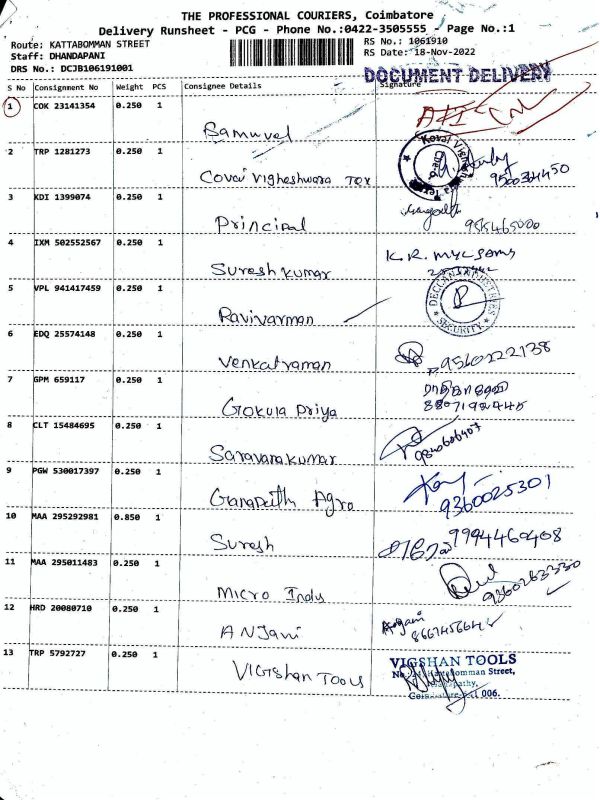 THE PROFESSIONAL COURIERS, Coimbatore
Delivery Runsheet - PCG - Phone No.:0422-3505555 - Page No.:1
Route: KATTABOMMAN STREET
RS No.: 1061910
Staff: DHANDAPANI
RS Date: 18-Nov-2022
DRS No.: DCJB106191001
DOCUMENT DELIVERY
S No Consignment No Weight PCS Consignee Details Signature
1 COK 23141354 0.250 1
Samuvel
2 TRP 1281273 0.250 1
Covai Vigheshwara Tex
3 KDI 1399074 0.250 1
Principal
4 IXM 502552567 0.250 1 K.R. 
Suresh kumar
5 VPL 941417459 0.250 1 DECCAN INDUSTRIES SECURITY
Ravivarman
6 EDQ 25574148 0.250 1
Venkatraman
7 GPM 659117 0.250 1
Gokula Priya
8 CLT 15484695 0.250 1
Saravanakumar
9 PGW 530017397 0.250 1 9360025301
Ganapathy Agro
10 MAA 295292981 0.850 1 9994460408
Suresh
11 MAA 295011483 0.250 1
Micro Indus
12 HRD 20080710 0.250 1
ANJani
13 TRP 5792727 0.250 1
VIGSHAN TOOLS
VIGSHAN TOOLS